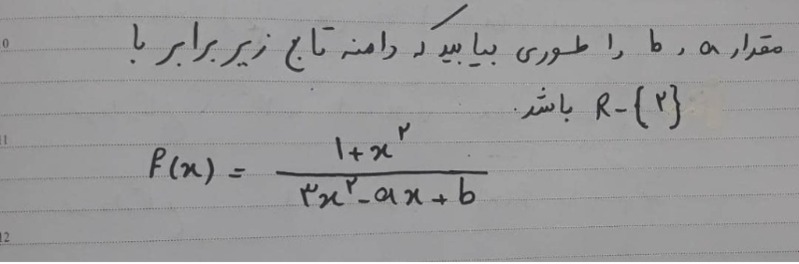 مقدار a و b را طوری بیابید که دامنه تابع زیر برابر با
R-{۲} باشد.
f(x) = (1+x^۲)/(۳x^۲-ax+b)
11
12